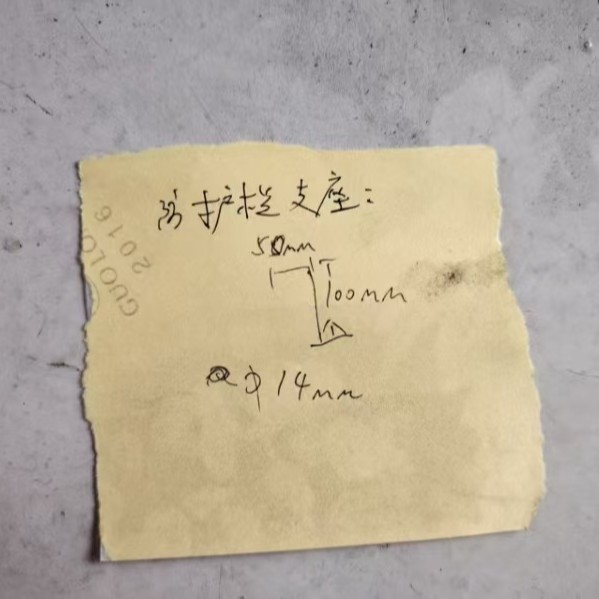 护栏支座：
50mm
100mm
φ14mm
GUOLO
2016